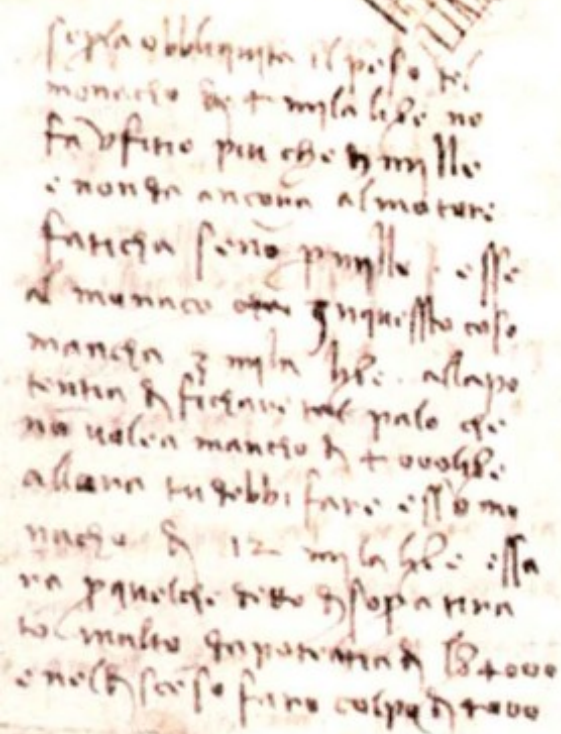 se per la obbliquita il peso del
monacho di 4 mila libre no
fa ufitio piu che di mille
e non da ancora al motore
faticha se no p mille e sse
al munaco in questo caso
mancha 3 mila libre alla po
tentia di fichare tal palo che
no volea mancho di 4000 libre
allora tu debbi fare esso mo
nacho di 12 mila libre e ssa
ra p quel che detto di sopra tira
to in alto da potentia di lb 4000
e nel disceso fara colpo di 4000